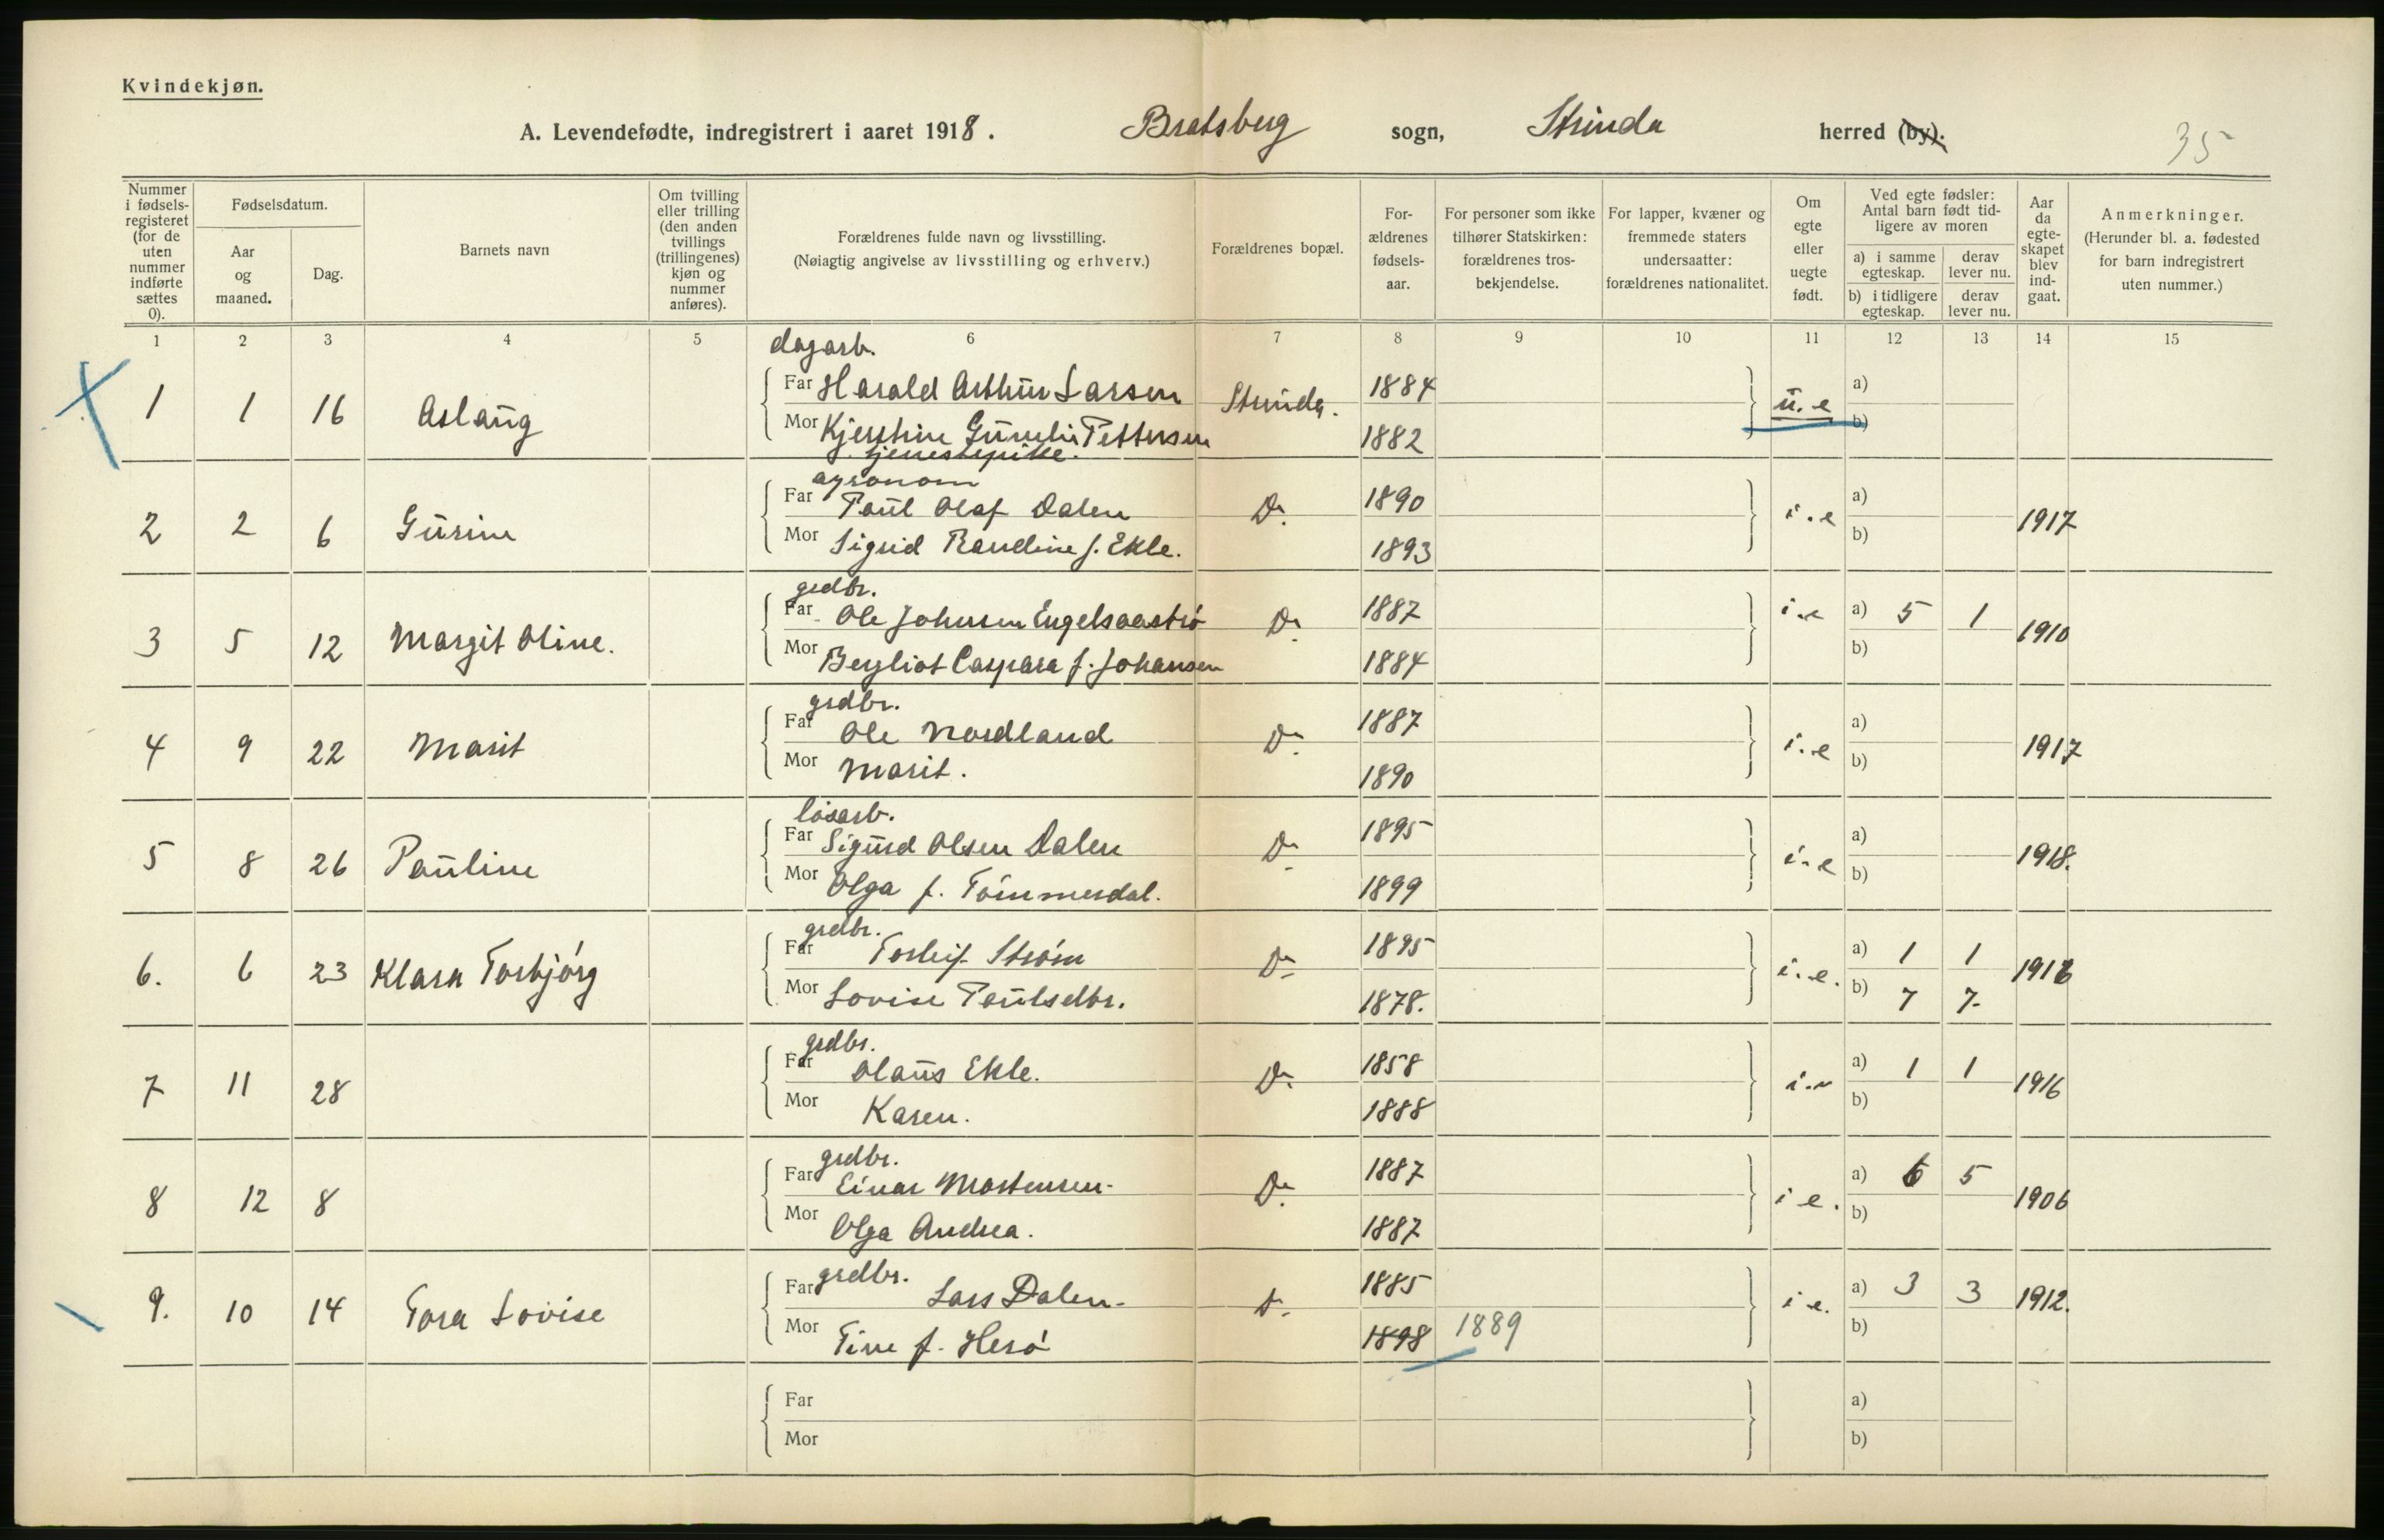 Kvindekjøn.
A. Levendefødte, indregistrert i aaret 1918. Bratsberg sogn, Strinda herred (by).
35
Nummer i fødsels-registeret (for de uten nummer indførte sættes 0).
Fødselsdatum.
Aar og maaned.
Dag.
Barnets navn
Om tvilling eller trilling (den anden tvillings (trillingenes) kjøn og nummer anføres).
Forældrenes fulde navn og livsstilling.
(Nøiagtig angivelse av livsstilling og erhverv.)
Forældrenes bopæl.
For-ældrenes fødsels-aar.
For personer som ikke tilhører Statskirken: forældrenes tros-bekjendelse.
For lapper, kvæner og fremmede staters undersaatter: forældrenes nationalitet.
Om egte eller uegte født.
Ved egte fødsler: Antal barn født tid-ligere av moren
a) i samme egteskap.
derav lever nu.
b) i tidligere egteskap.
derav lever nu.
Aar da egte-skapet blev ind-gaat.
Anmerkninger.
(Herunder bl. a. fødested for barn indregistrert uten nummer.)
1 2 3 4 5 6 7 8 9 10 11 12 13 14 15
dagarb.
1 1 16 Aslaug Far Harald Arthur Larsen Strinda. 1884 u.e a)
Mor Kjerstine Gurelie Pettersen 1882 b)
tjenestepike.
agronom
2 2 6 Gurine Far Paul Olaf Dalen Do 1890 i.e a) 1917
Mor Sigrid Randine f. Ekle. 1893 b)
grdbr.
3 5 12 Margit Oline. Far Ole Johnsen Engelsaastrø Do 1887 i.e a) 5 1 1910
Mor Bergliot Caspara f. Johansen 1884 b)
grdbr.
4 9 22 Marit Far Ole Nordland Do 1887 i.e a) 1917
Mor Marit. 1890 b)
løsarb.
5 8 26 Pauline Far Sigurd Olsen Dalen Do 1895 i.e a) 1918.
Mor Olga f. Tømmerdal. 1899 b)
grdbr.
6. 6 23 Klara Torbjørg Far Torleif Strøm Do 1895 i.e. a) 1 1 1916
Mor Lovise Paulsdtr. 1878. b) 7 7
grdbr.
7 11 28 Far Olaus Ekle. Do 1858 i.e a) 1 1 1916
Mor Karen. 1888 b)
grdbr.
8 12 8 Far Einar Mortensen Do 1887 i e. a) 6 5 1906
Mor Olga Andrea. 1887 b)
grdbr.
9. 10 14 Tora Lovise Far Lars Dalen Do 1885 i e. a) 3 3 1912.
Mor Tine f. Herø 1898 1889 b)
Far a)
Mor b)